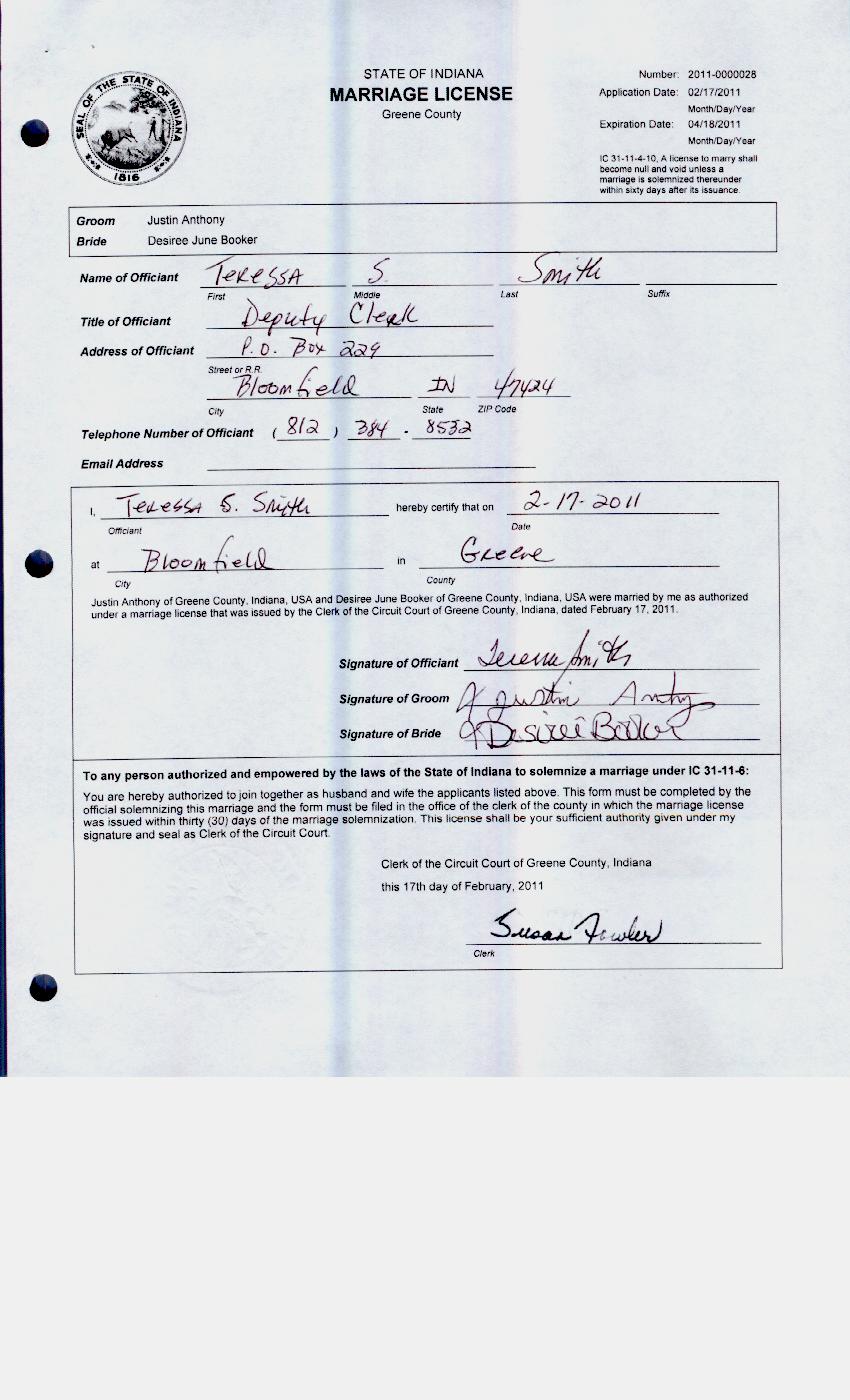 SEAL OF THE STATE OF INDIANA
1816
STATE OF INDIANA
MARRIAGE LICENSE
Greene County
Number: 2011-0000028
Application Date: 02/17/2011
Month/Day/Year
Expiration Date: 04/18/2011
Month/Day/Year
IC 31-11-4-10, A license to marry shall
become null and void unless a
marriage is solemnized thereunder
within sixty days after its issuance.
Groom Justin Anthony
Bride Desiree June Booker
Name of Officiant Teressa S. Smith
First Middle Last Suffix
Title of Officiant Deputy Clerk
Address of Officiant P.O. Box 229
Street or R.R.
Bloomfield IN 47424
City State ZIP Code
Telephone Number of Officiant ( 812 ) 384 - 8532
Email Address
I, Teressa S. Smith hereby certify that on 2-17-2011
Officiant Date
at Bloomfield in Greene
City County
Justin Anthony of Greene County, Indiana, USA and Desiree June Booker of Greene County, Indiana, USA were married by me as authorized
under a marriage license that was issued by the Clerk of the Circuit Court of Greene County, Indiana, dated February 17, 2011.
Signature of Officiant Teressa Smith
Signature of Groom Justin Anthony
Signature of Bride Desireé Booker
To any person authorized and empowered by the laws of the State of Indiana to solemnize a marriage under IC 31-11-6:
You are hereby authorized to join together as husband and wife the applicants listed above. This form must be completed by the
official solemnizing this marriage and the form must be filed in the office of the clerk of the county in which the marriage license
was issued within thirty (30) days of the marriage solemnization. This license shall be your sufficient authority given under my
signature and seal as Clerk of the Circuit Court.
Clerk of the Circuit Court of Greene County, Indiana
this 17th day of February, 2011
Susan Fowler
Clerk